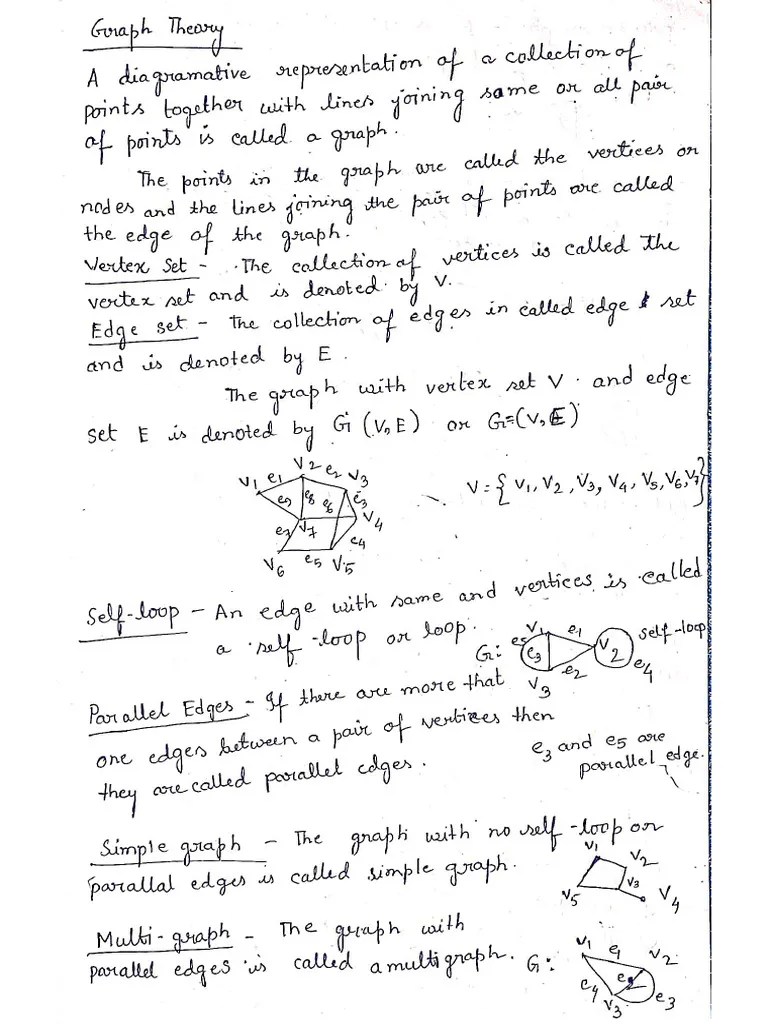 Graph Theory
A diagramative representation of a collection of
points together with lines joining same or all pair
of points is called a graph.
The points in the graph are called the vertices or
nodes and the lines joining the pair of points are called
the edge of the graph.
Vertex Set - The collection of vertices is called the
vertex set and is denoted by V.
Edge set - The collection of edges in called edge set
and is denoted by E.
The graph with vertex set V and edge
set E is denoted by G (V, E) or G=(V, E)
V1 e1 V2 e2 V3
e9 e8 e6 e3
V = { V1, V2, V3, V4, V5, V6, V7}
e7 V7 e4 V4
V6 e5 V5
Self-loop - An edge with same and vertices is called
a self-loop or loop.
G: e5 V1 e1 e3 V2 self-loop
V3 e2 e4
Parallel Edges - If there are more that
one edges between a pair of vertices then
they are called parallel edges.
e3 and e5 are
parallel edge.
Simple graph - The graph with no self-loop or
parallal edges is called simple graph.
V1 V2
V5 V3 V4
Multi-graph - The graph with
parallel edges is called a multigraph.
G: V1 e1 V2
e4 e2
V3 e3